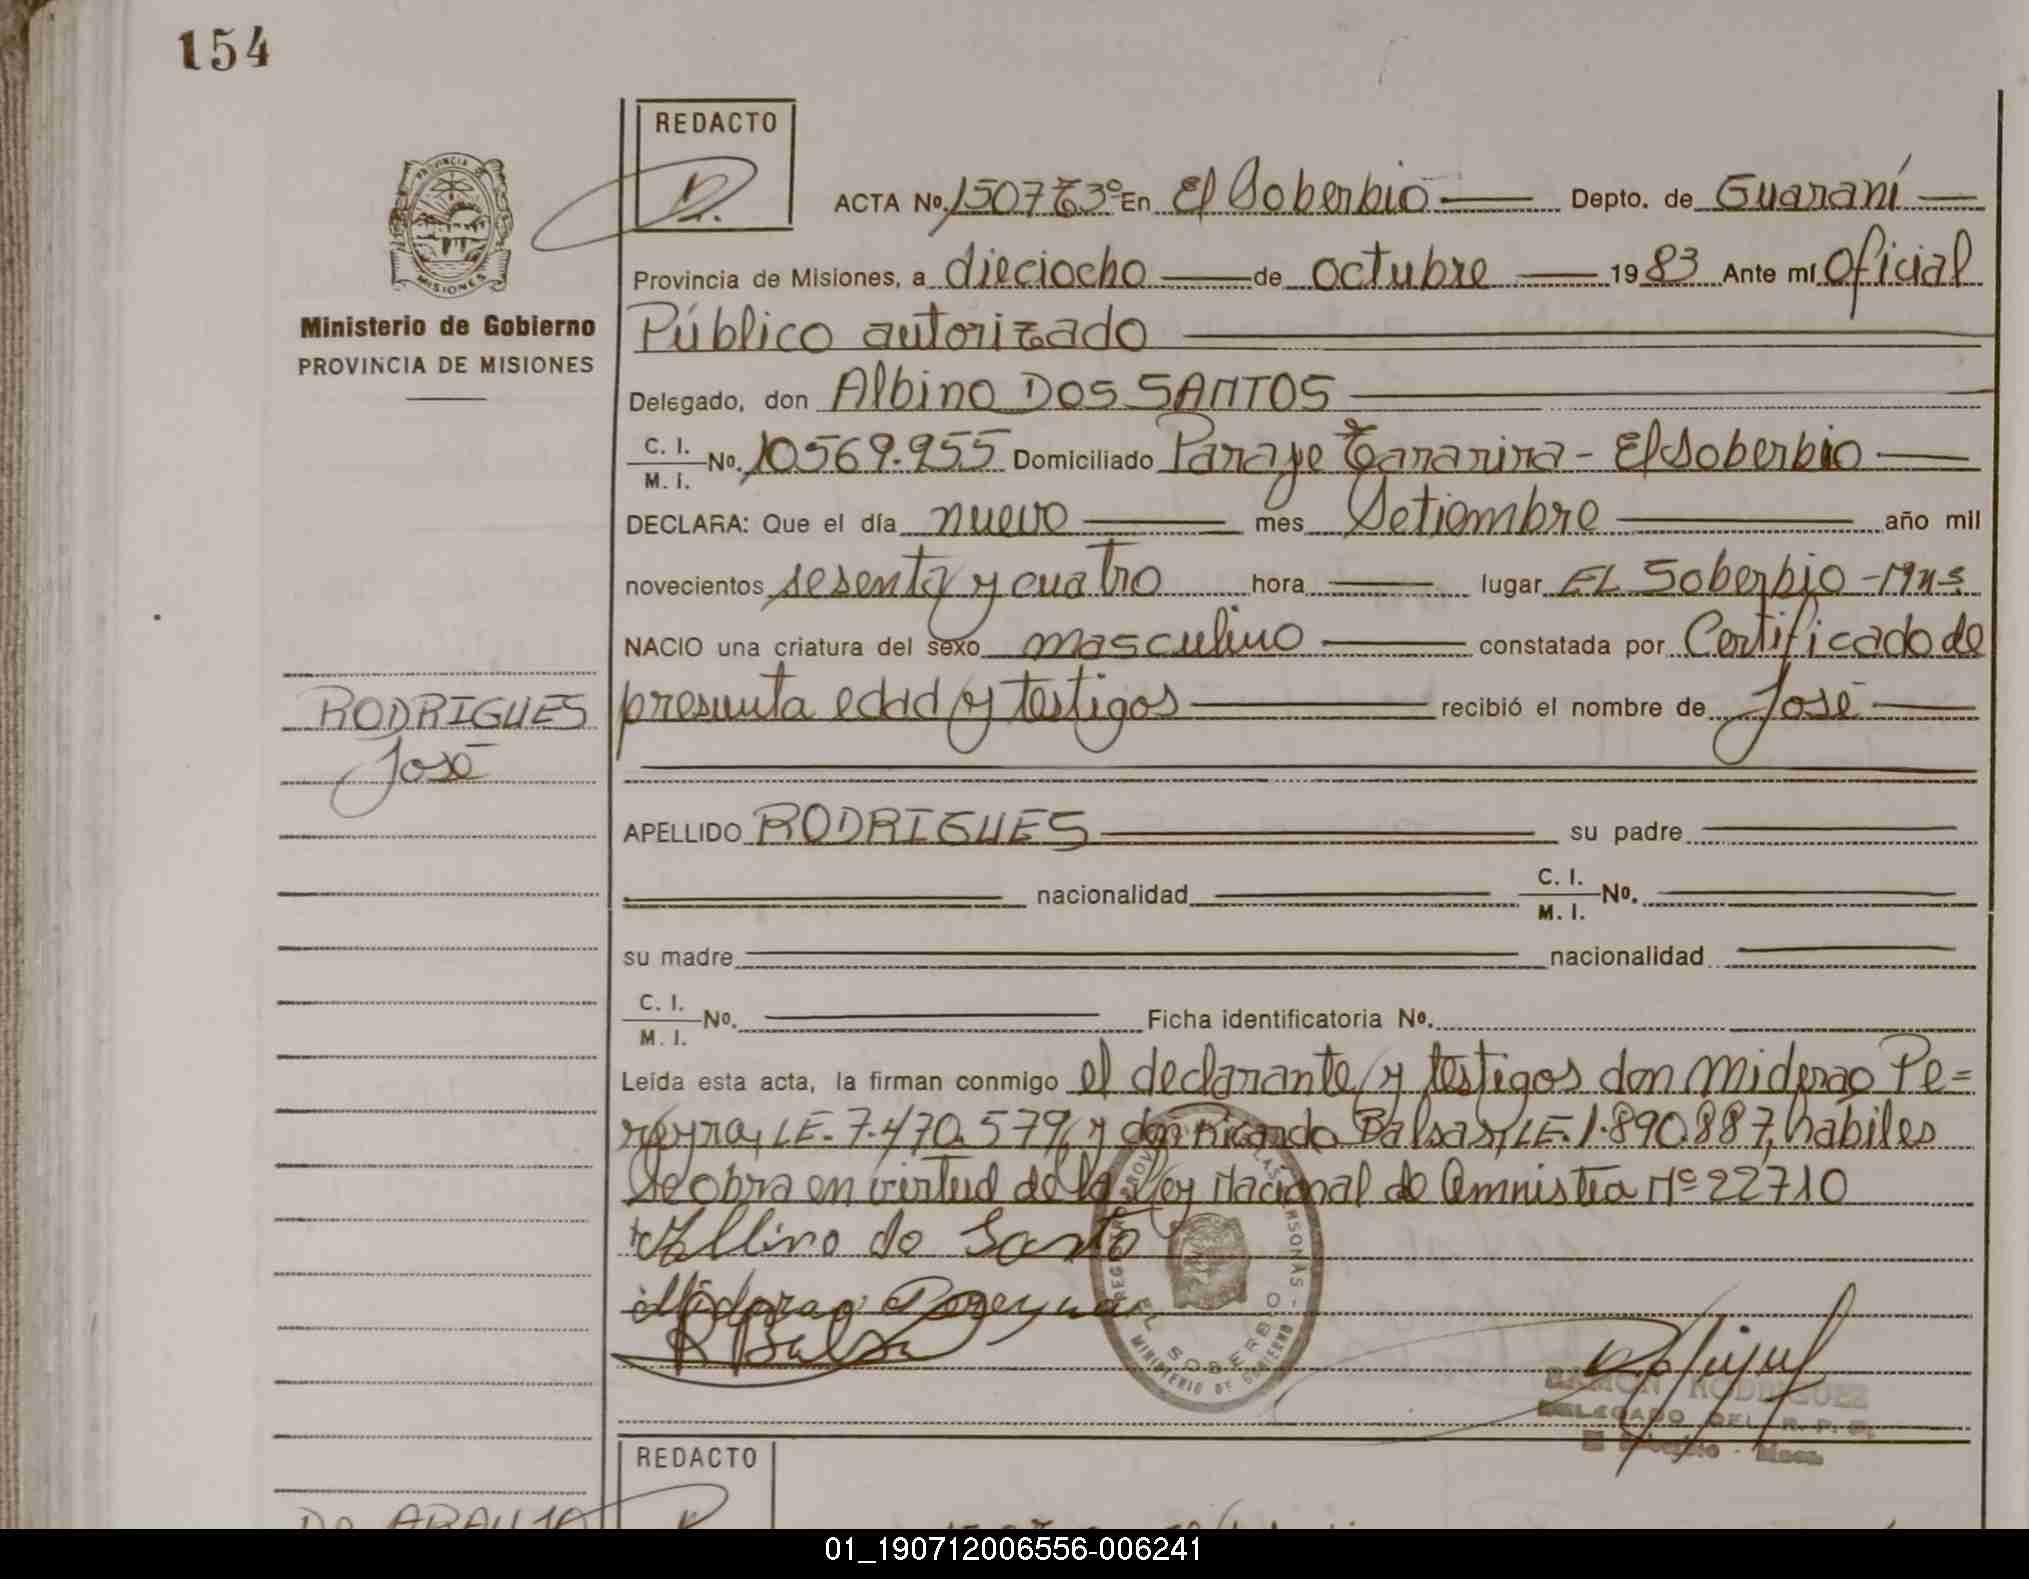 154
REDACTO
ACTA Nº 1507 T3º En El Soberbio Depto. de Guaraní
Provincia de Misiones, a dieciocho de octubre 1983 Ante mí Oficial
Público autorizado
Ministerio de Gobierno
PROVINCIA DE MISIONES
Delegado, don Albino DOS SANTOS
C. I.
M. I. Nº. 10569.955 Domiciliado Paraje Tararira - El Soberbio
DECLARA: Que el día nueve mes Setiembre año mil
novecientos sesenta y cuatro hora lugar EL Soberbio - Mns
NACIO una criatura del sexo masculino constatada por Certificado de
presunta edad y testigos recibió el nombre de José
RODRIGUES
José
APELLIDO RODRIGUES su padre
nacionalidad C. I.
M. I. Nº.
su madre nacionalidad
C. I.
M. I. Nº. Ficha identificatoria Nº.
Leída esta acta, la firman conmigo el declarante y testigos don Miderao Pe=
reyra, LE. 7.470.579, y don Ricardo Balsas, LE. 1.890.887, hábiles
Se obra en virtud de la Ley Nacional de Amnistía Nº 22710
do Santo
Miderao Pereyra
R Balsa
EL SOBERBIO
MINISTERIO DE GOBIERNO
RAMON RODRIGUEZ
DELEGADO DEL R. P. P.
El Soberbio - Mnes.
REDACTO
Do ARAUJA
01_190712006556-006241